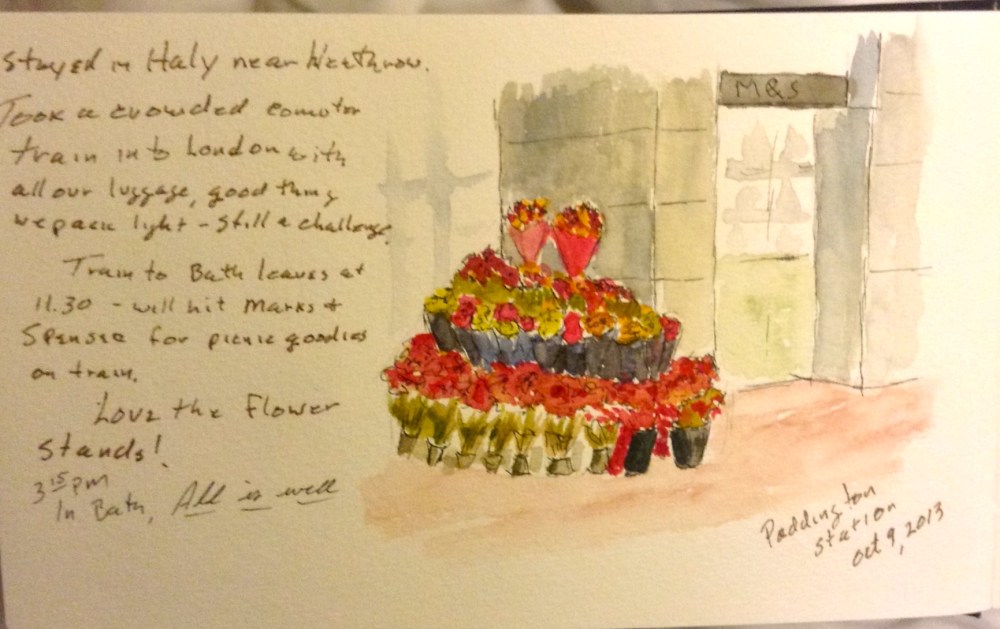 Stayed in Haly near Heathrow.
Took a crowded comutor
train into London with
all our luggage, good thing
we pack light - Still a challenge.
Train to Bath leaves at
11.30 - will hit Marks &
Spensie for picnic goodies
on train.
Love the Flower
Stands!
3 15 pm
In Bath, All is well
M&S
Paddington
Station
Oct 9, 2013